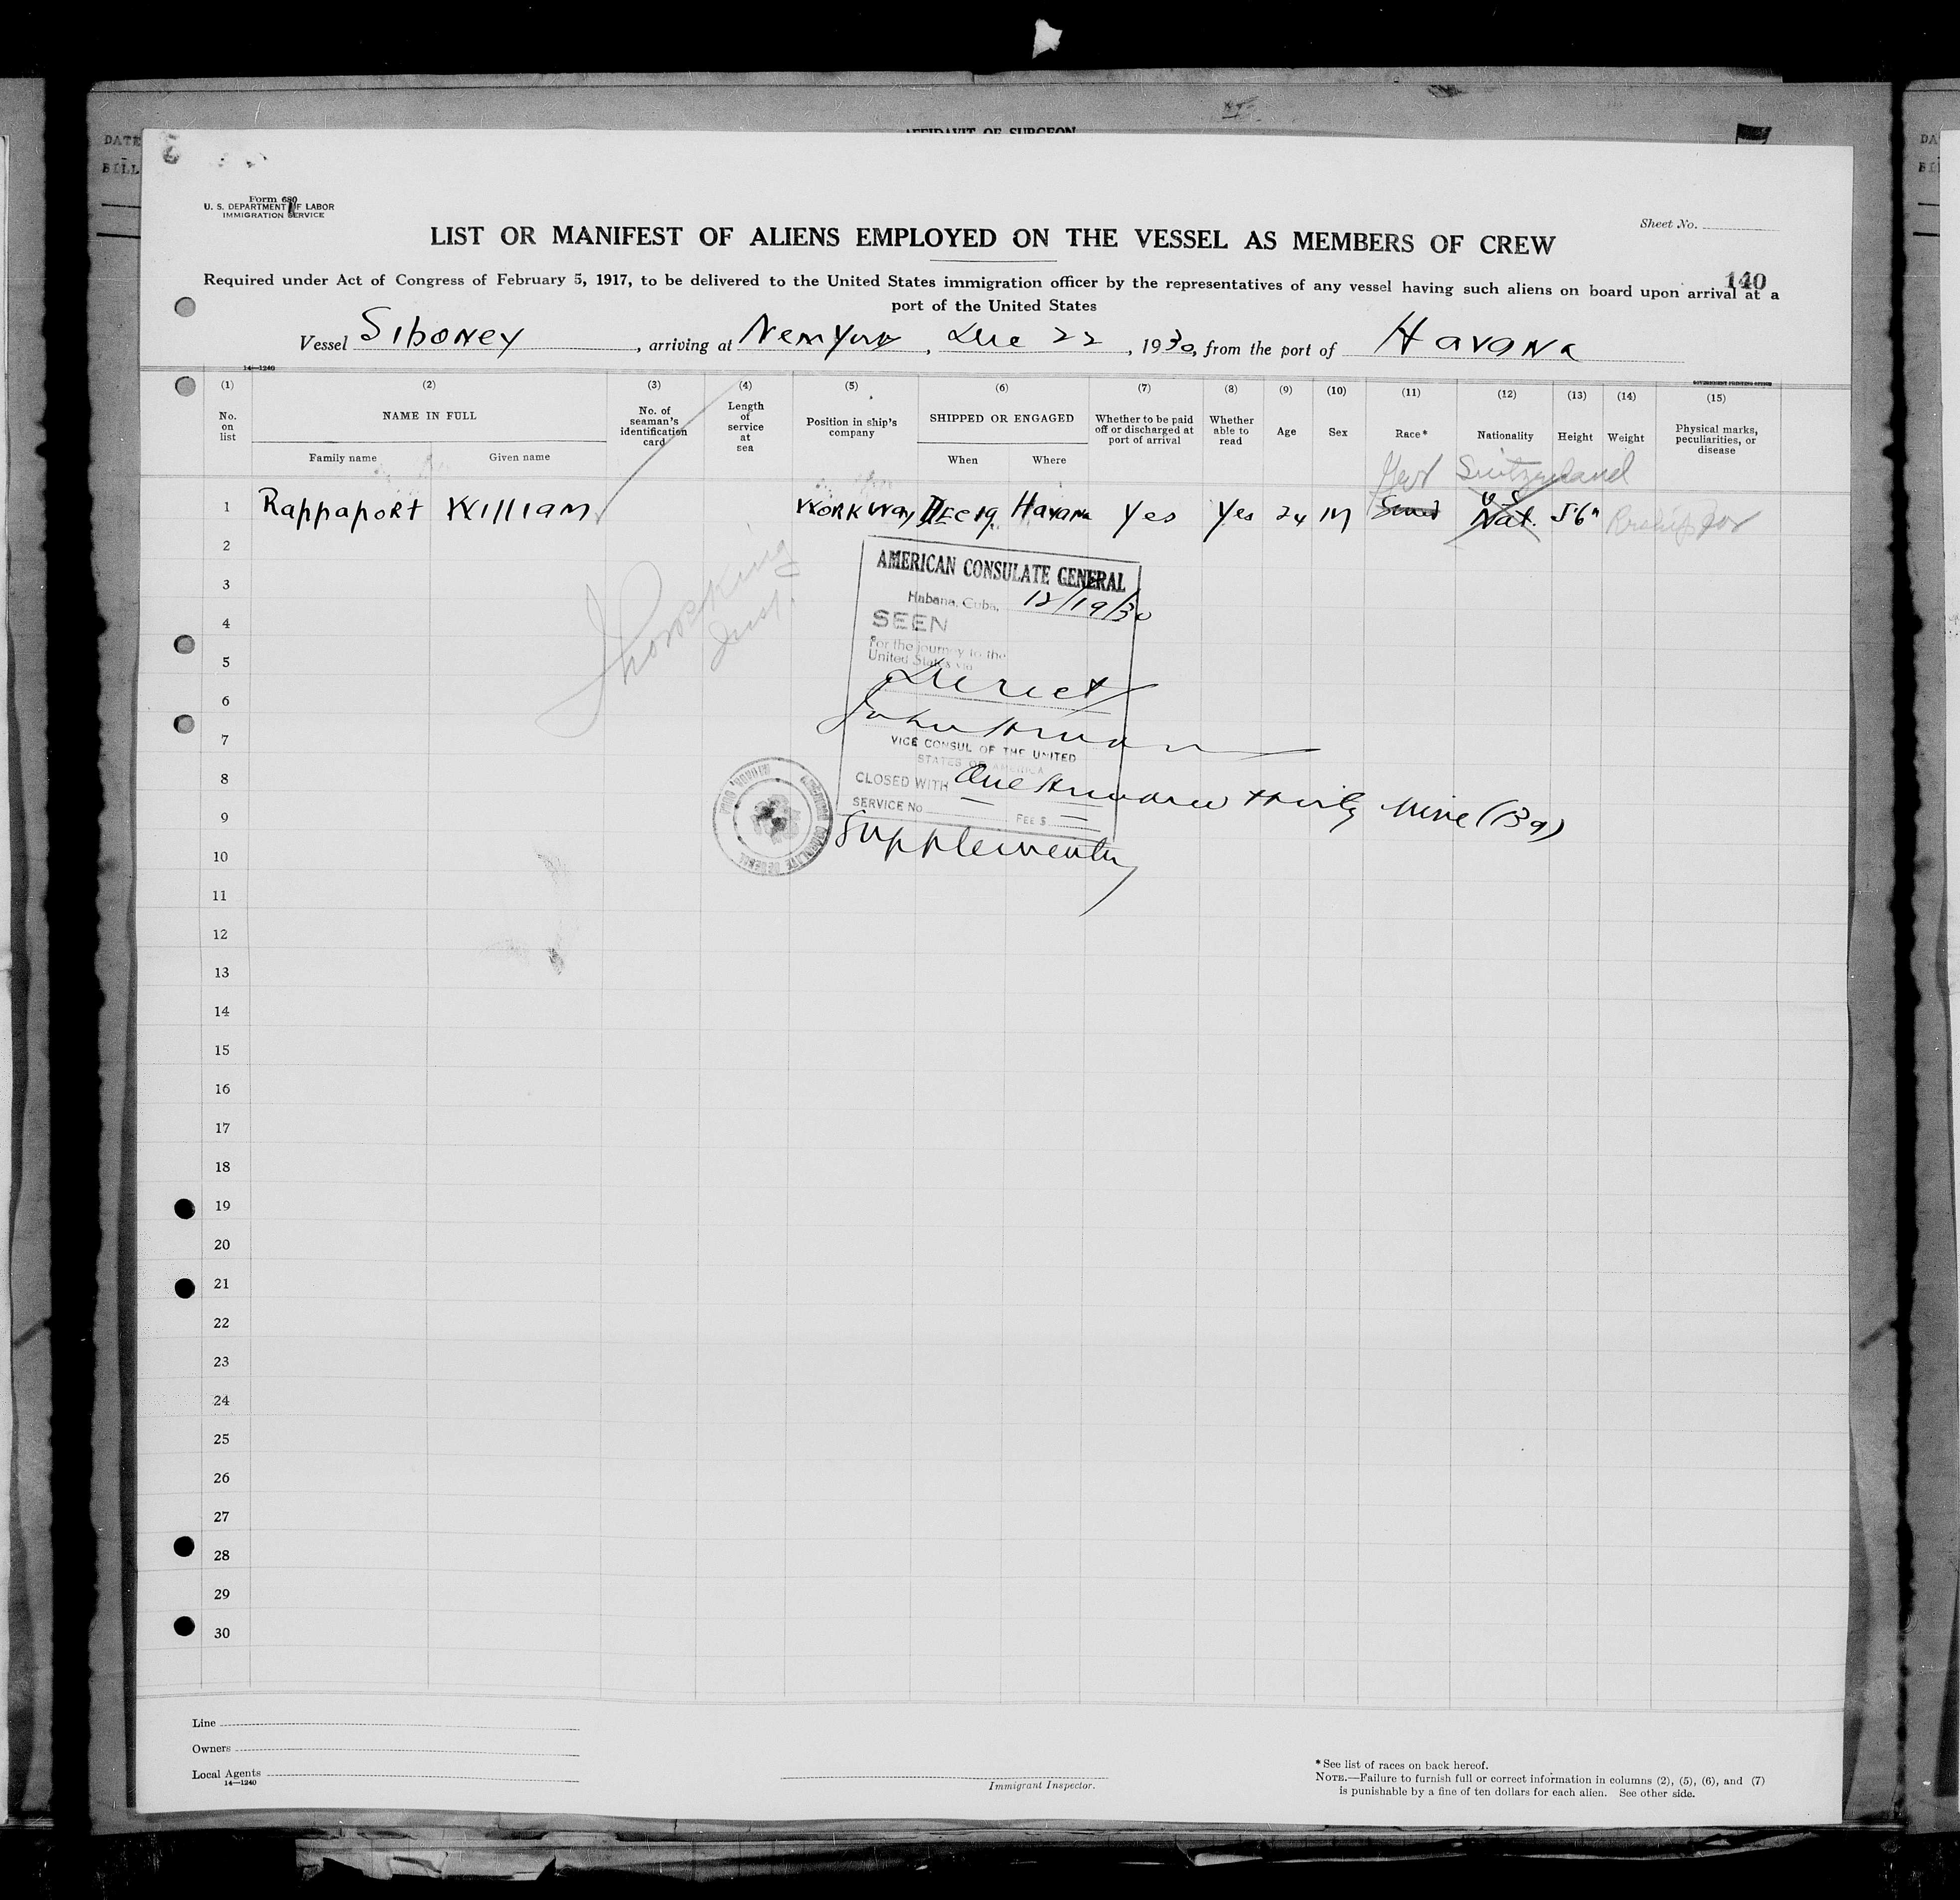 AFFIDAVIT OF SURGEON
DATE
BILL
Form 680
U. S. DEPARTMENT OF LABOR
IMMIGRATION SERVICE
Sheet No.
LIST OR MANIFEST OF ALIENS EMPLOYED ON THE VESSEL AS MEMBERS OF CREW
140
Required under Act of Congress of February 5, 1917, to be delivered to the United States immigration officer by the representatives of any vessel having such aliens on board upon arrival at a
port of the United States
Vessel Siboney, arriving at New York, Dec 22, 1930, from the port of Havana
14—1240
GOVERNMENT PRINTING OFFICE
(1) (2) (3) (4) (5) (6) (7) (8) (9) (10) (11) (12) (13) (14) (15)
No. on list
NAME IN FULL
Family name
Given name
No. of seaman's identification card
Length of service at sea
Position in ship's company
SHIPPED OR ENGAGED
When
Where
Whether to be paid off or discharged at port of arrival
Whether able to read
Age
Sex
Race*
Nationality
Height
Weight
Physical marks, peculiarities, or disease
Switzerland
1 Rappaport William Workway Dec 19 Havana Yes Yes 24 M U S Nat. 5'6"
2
3
4
5
6
7
8
9
10
11
12
13
14
15
16
17
18
19
20
21
22
23
24
25
26
27
28
29
30
AMERICAN CONSULATE GENERAL
Habana, Cuba, 12/19/30
SEEN
For the journey to the
United States via
Direct
VICE CONSUL OF THE UNITED
STATES OF AMERICA
CLOSED WITH One Hundred thirty Nine (139)
SERVICE No FEE $
Supplementary
AMERICAN CONSULATE GENERAL
HABANA, CUBA
Line
Owners
Local Agents
14—1240
Immigrant Inspector.
* See list of races on back hereof.
NOTE.—Failure to furnish full or correct information in columns (2), (5), (6), and (7)
is punishable by a fine of ten dollars for each alien. See other side.